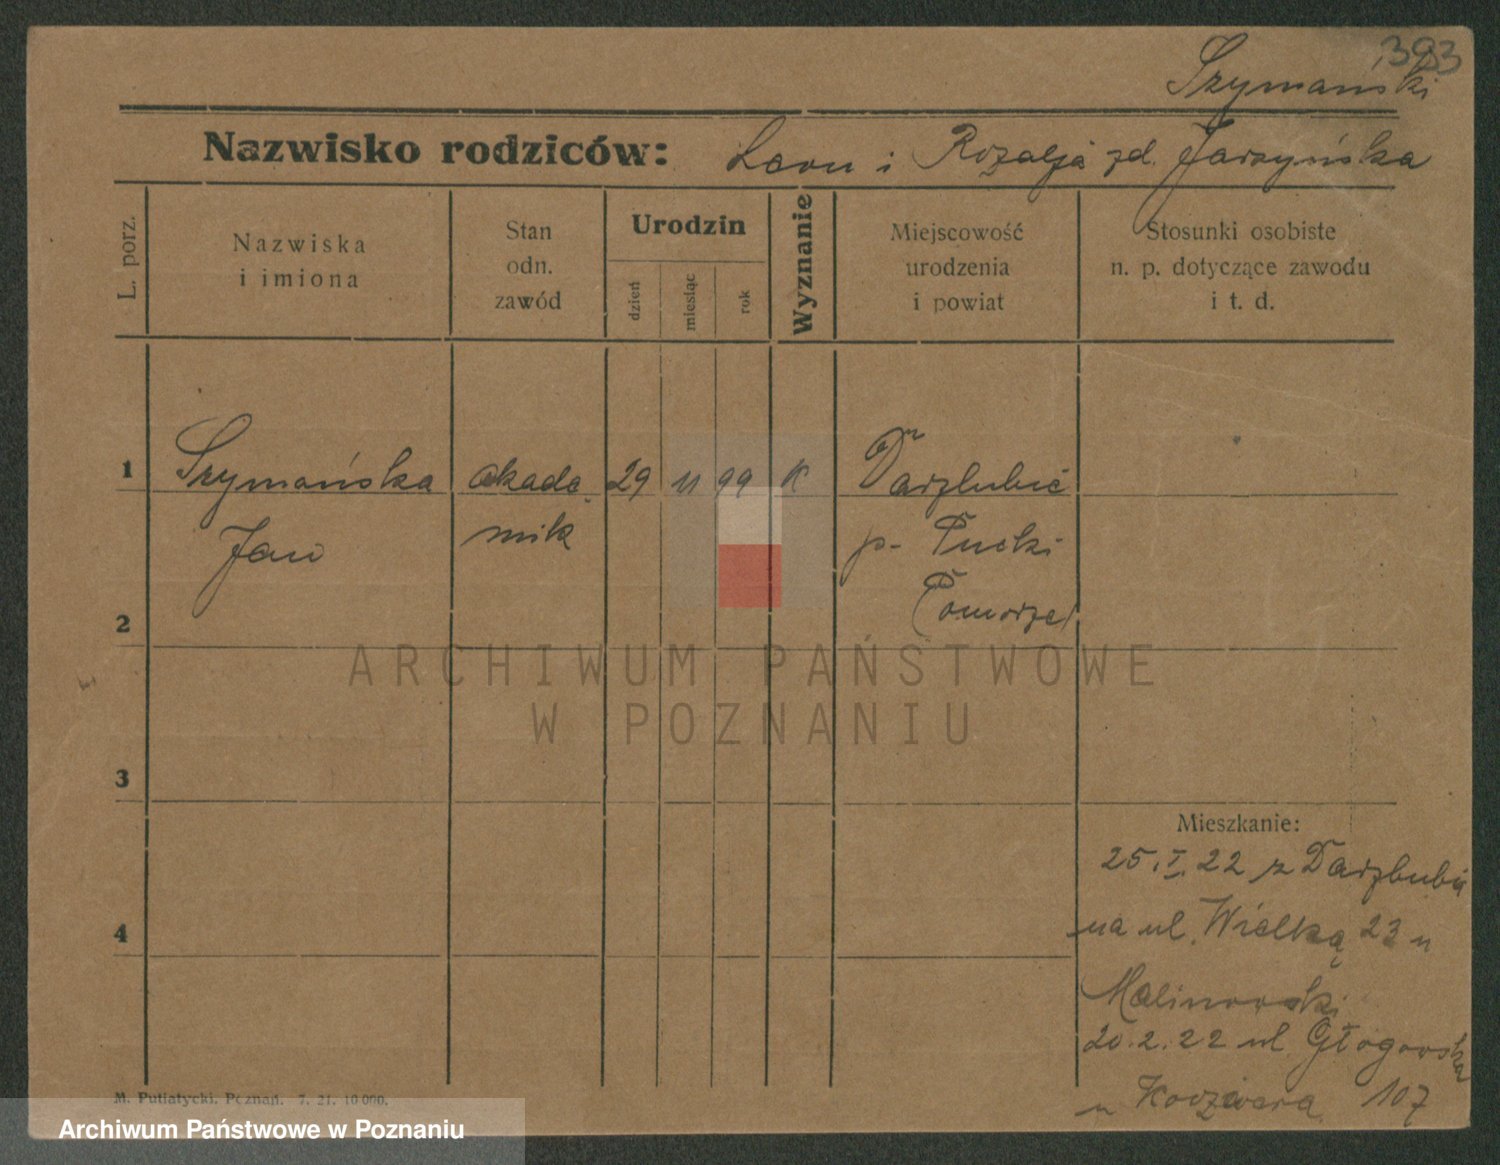 393
Szymański
Nazwisko rodziców: Leon i Rozalja zd. Jarzyńska
L. porz.
Nazwiska
i imiona
Stan
odn.
zawód
Urodzin
dzień
miesiąc
rok
Wyznanie
Miejscowość
urodzenia
i powiat
Stosunki osobiste
n. p. dotyczące zawodu
i t. d.
1 Szymańska akade- 29 11 99 K Darzlubie
Jan mik p. Pucki
2 Pomorze
ARCHIWUM PAŃSTWOWE
W POZNANIU
3
Mieszkanie:
25.I.22 z Darzlubia
4 na ul. Wielką 23 u
Malinowski
20.2.22 ul. Głogowska
u 107
M. Putiatycki, Poznań. 7. 21. 10000.
Archiwum Państwowe w Poznaniu